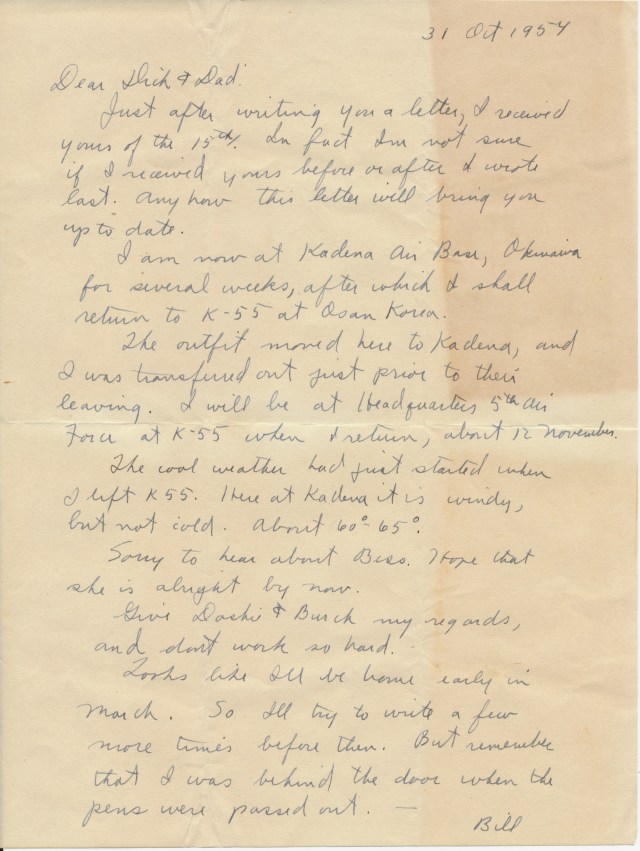 31 Oct 1954
Dear Dick & Dad.
Just after writing you a letter, I received
yours of the 15th. In fact I'm not sure
if I received yours before or after I wrote
last. Anyhow this letter will bring you
up to date.
I am now at Kadena Air Base, Okinawa
for several weeks, after which I shall
return to K-55 at Osan Korea.
The outfit moved here to Kadena, and
I was transferred out just prior to their
leaving. I will be at Headquarters 5th Air
Force at K-55 when I return, about 12 November.
The cool weather had just started when
I left K55. Here at Kadena it is windy,
but not cold. About 60°-65°.
Sorry to hear about Bess. Hope that
she is alright by now.
Give & Burch my regards,
and don't work so hard.
Looks like I'll be home early in
March. So I'll try to write a few
more times before then. But remember
that I was behind the door when the
pens were passed out. —
Bill